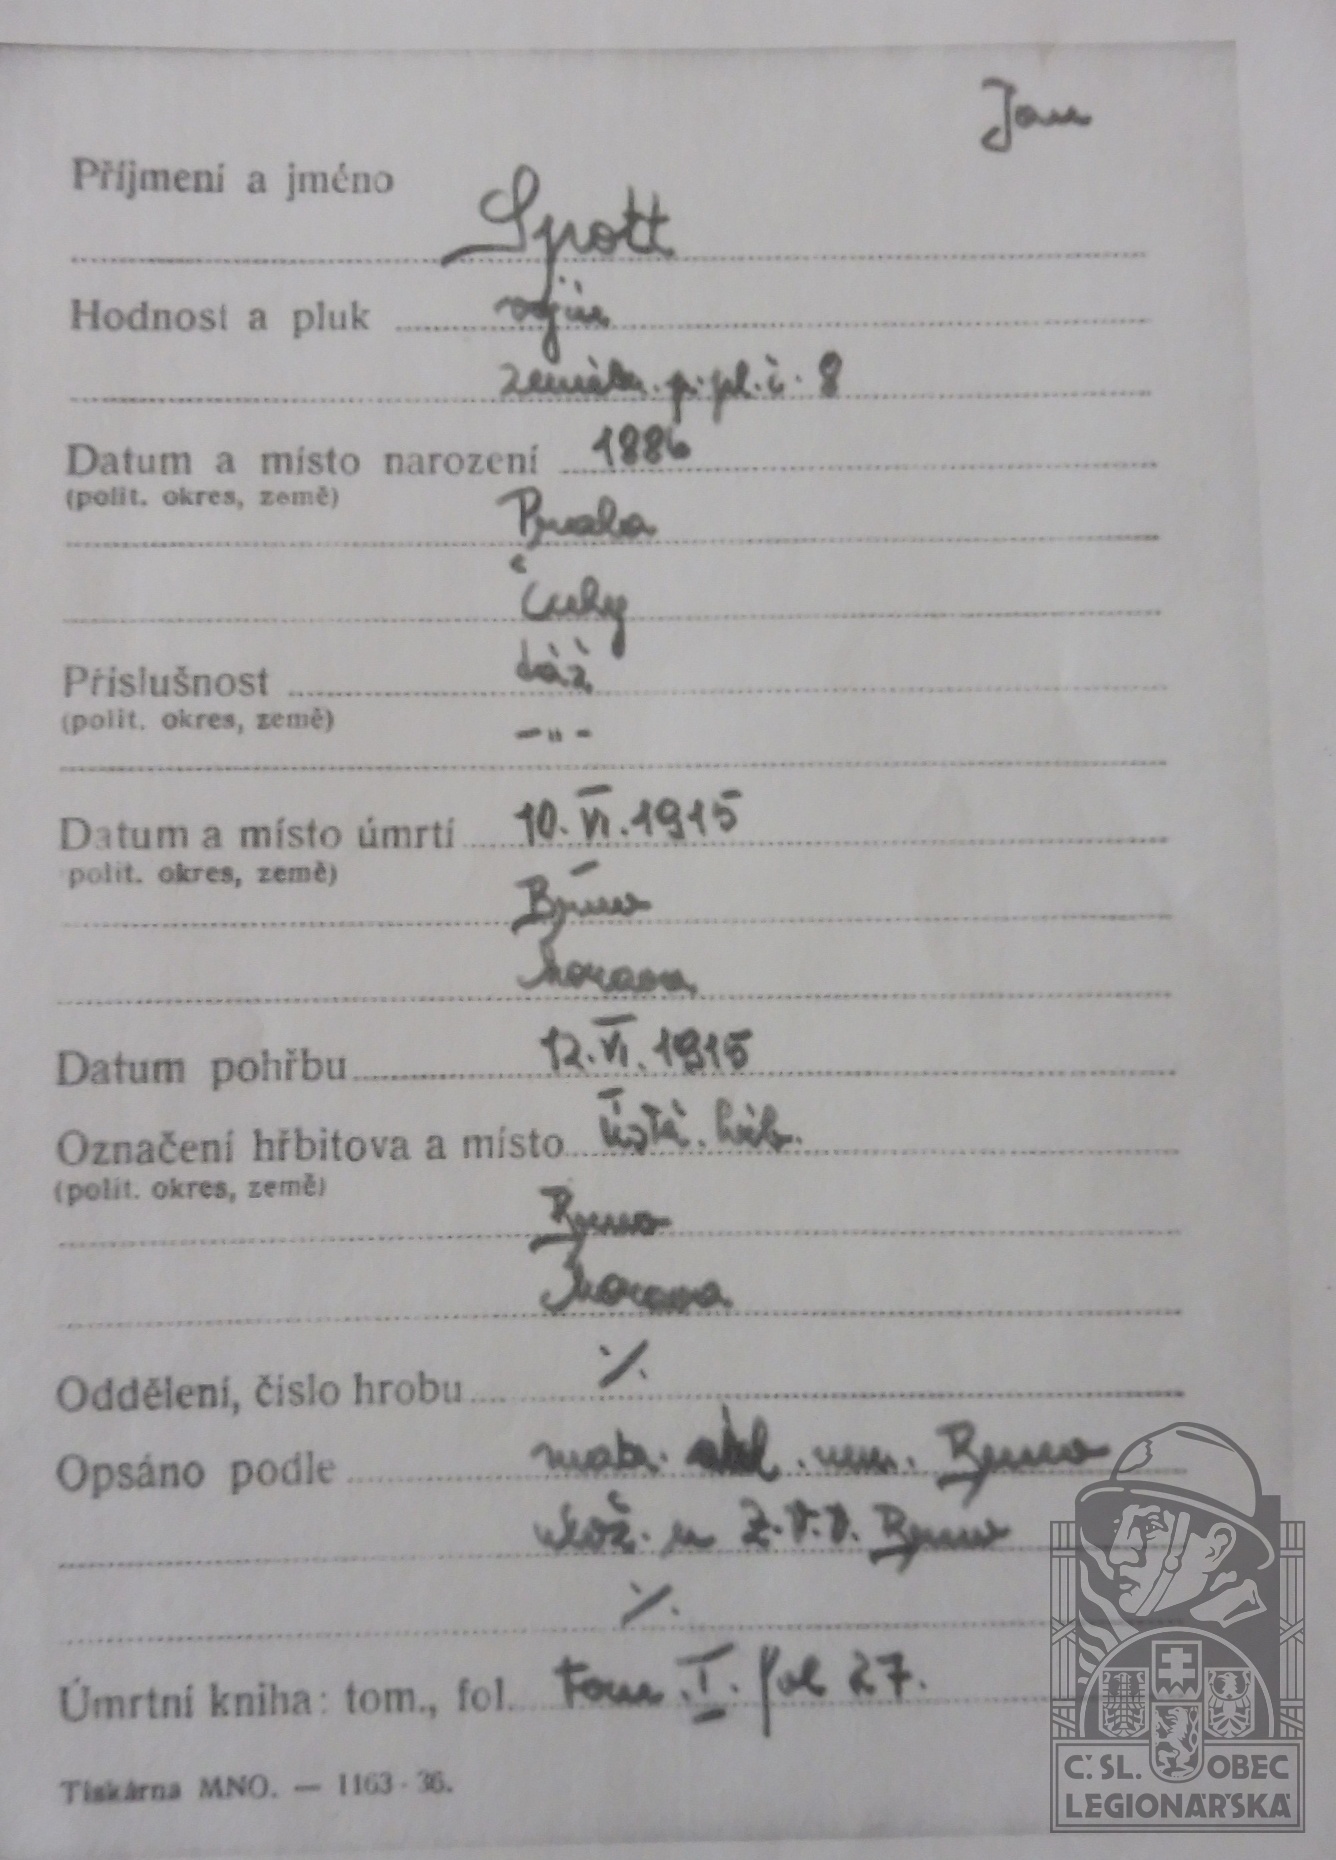 Jan
Příjmení a jméno
Spott
Hodnost a pluk vojín
zeměb. p. pl. č. 8
Datum a místo narození 1886
(polit. okres, země)
Praha
Čechy
Příslušnost táž
(polit. okres, země)
-"-
Datum a místo úmrtí 10. VI. 1915
polit. okres, země)
Brno
Morava
Datum pohřbu 12. VI. 1915
Označení hřbitova a místo Ústř. hřb.
(polit. okres, země)
Brno
Morava
Oddělení, číslo hrobu ./.
Opsáno podle matr. nem. Brno
ulož. u Z.V.V. Brno
./.
Úmrtní kniha: tom., fol. tom. I. fol 27.
Tiskárna MNO. — 1163 - 36.
Č.SL. OBEC
LEGIONÁŘSKÁ